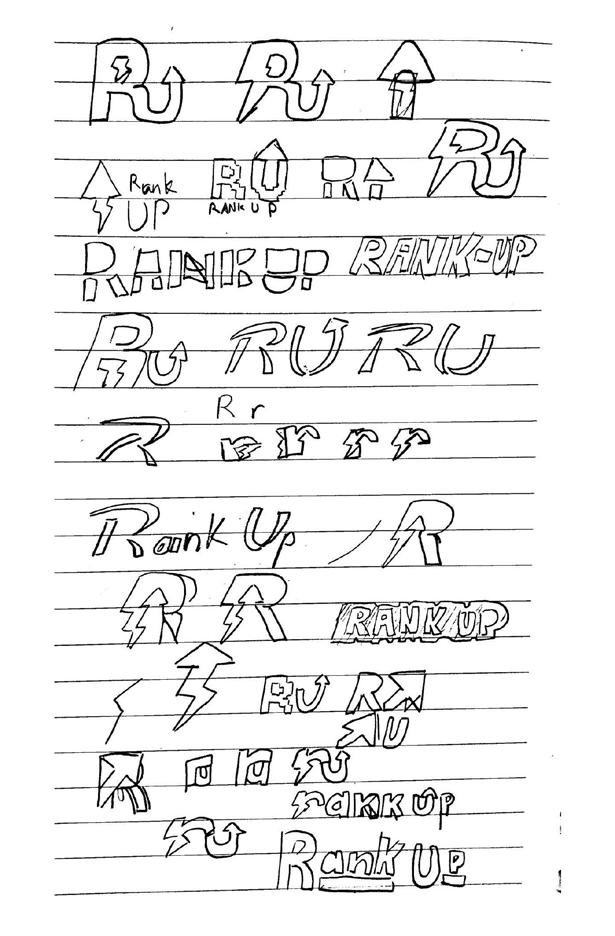 RU RU
Rank UP RU RANK UP RA RU
RANK UP RANK-UP
RU RU RU
R R r r r r r
Rank Up R
R R RANK UP
RU R
U
R ru ru ru
rakk up
ru Rank Up